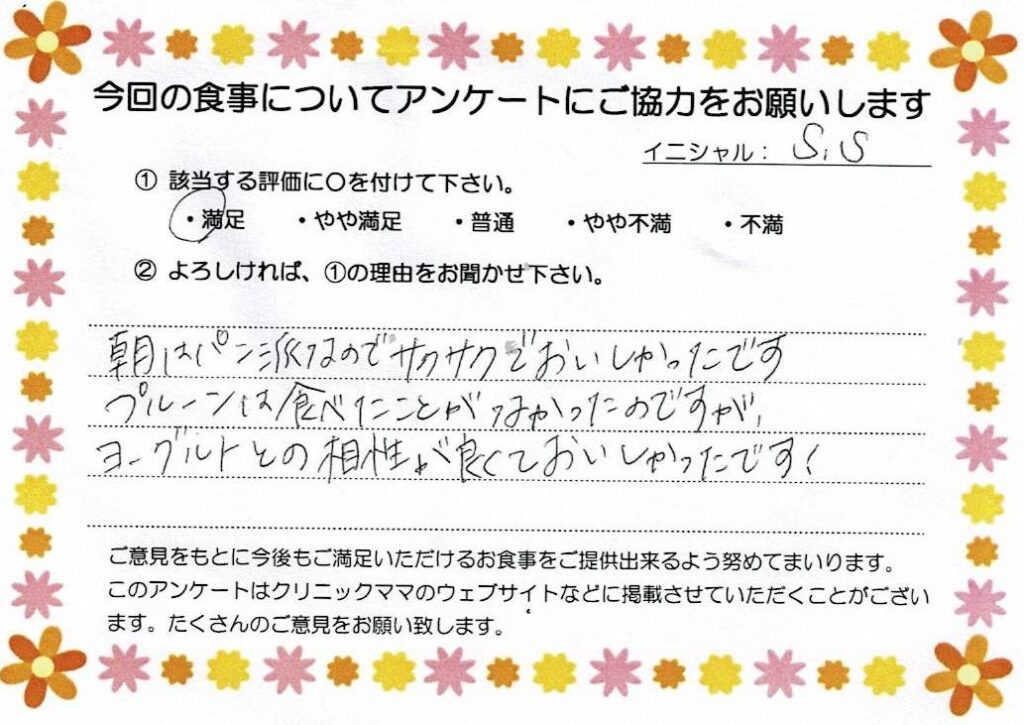 今回の食事についてアンケートにご協力をお願いします
イニシャル： S.S
① 該当する評価に○を付けて下さい。
・満足 ・やや満足 ・普通 ・やや不満 ・不満
② よろしければ、①の理由をお聞かせ下さい。
朝はパン派なのでサクサクでおいしかったです
プルーンは食べたことがなかったのですが、
ヨーグルトとの相性が良くておいしかったです！
ご意見をもとに今後もご満足いただけるお食事をご提供出来るよう努めてまいります。
このアンケートはクリニックママのウェブサイトなどに掲載させていただくことがござい
ます。たくさんのご意見をお願い致します。